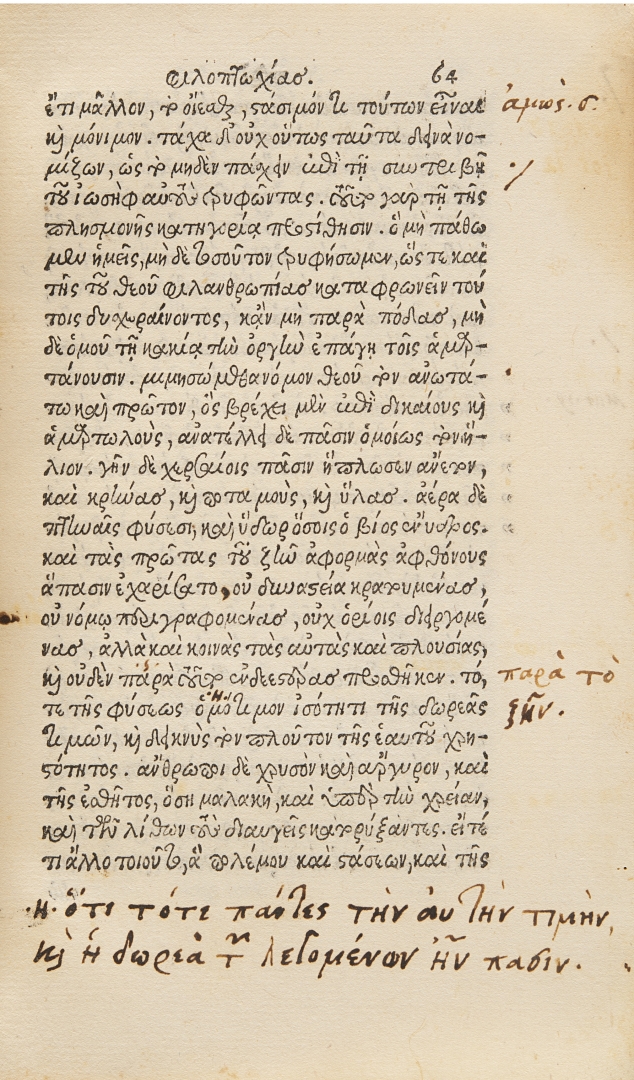 φιλοπτωχίας. 64
ἔτι μᾶλλον, ὃ οἴεσθε, στάσιμόν τι τούτων εἶναι
ἀμὼς. ς.
καὶ μόνιμον. τάχα δ' οὐχ οὕτως ταῦτα διῃνανο-
μίζων, ὡς τὸ μηδὲν πάσχειν ἐπὶ τῇ συντριβῇ
τοῦ ἰωσὴφ αὐτοὺς τρυφῶντας. τοῦτο γὰρ τῇ τῆς
πλησμονῆς κατηγορίᾳ προστίθησιν. ὃ μὴ πάθω
μεν ἡμεῖς, μὴ δὲ τοσοῦτον τρυφήσωμεν, ὥς τε καὶ
τῆς τοῦ θεοῦ φιλανθρωπίας καταφρονεῖν τού
τοις δυσχεραίνοντος, κἂν μὴ παρὰ πόδας, μὴ
δὲ ὁμοῦ τῇ κακίᾳ τὴν ὀργὴν ἐπάγῃ τοῖς ἁμαρ-
τάνουσιν. μιμησώμεθα νόμον θεοῦ τὸν ἀνωτά-
τω καὶ πρῶτον, ὃς βρέχει μὲν ἐπὶ δικαίους καὶ
ἁμαρτωλοὺς, ἀνατέλλει δὲ πᾶσιν ὁμοίως τὸν ἥ-
λιον. γῆν δὲ χερσαίοις πᾶσιν ἥπλωσεν ἄνετον,
καὶ κρήνας, καὶ ποταμοὺς, καὶ ὕλας. ἀέρα δὲ
πτηναῖς φύσεσι, καὶ ὕδωρ ὅσοις ὁ βίος ἔνυδρος.
καὶ τὰς πρώτας τοῦ ζῆν ἀφορμὰς ἀφθόνους
ἅπασιν ἐχαρίσατο, οὐ δυναστείᾳ κρατουμένας,
οὐ νόμῳ περιγραφομένας, οὐχ ὁρίοις διειργομέ
νας, ἀλλὰ καὶ κοινὰς τὰς αὐτὰς καὶ πλουσίας,
καὶ οὐδὲν παρὰ τοῦτο ἐνδεεστέρας προθῆκεν. τό,
παρὰ τὸ
τε τῆς φύσεως ὁμότιμον ἰσότητι τῆς δωρεᾶς
ζῆν.
τιμῶν, καὶ δεικνὺς τὸν πλοῦτον τῆς ἑαυτοῦ χρη-
στότητος. ἄνθρωποι δὲ χρυσὸν καὶ ἄργυρον, καὶ
τῆς ἐσθῆτος, ὅση μαλακὴ, καὶ ὑπὲρ τὴν χρείαν,
καὶ τῶν λίθων τοὺς διαυγεῖς κατορύξαντες. εἴ τέ
τι ἄλλο τοιοῦτο, ἃ πολέμου καὶ στάσεων, καὶ τῆς
·η· ὅτι τότε πάντες τὴν αὐτὴν τιμὴν,
καὶ ἡ δωρεὰ τ λεγομένων ἦν πᾶσιν.